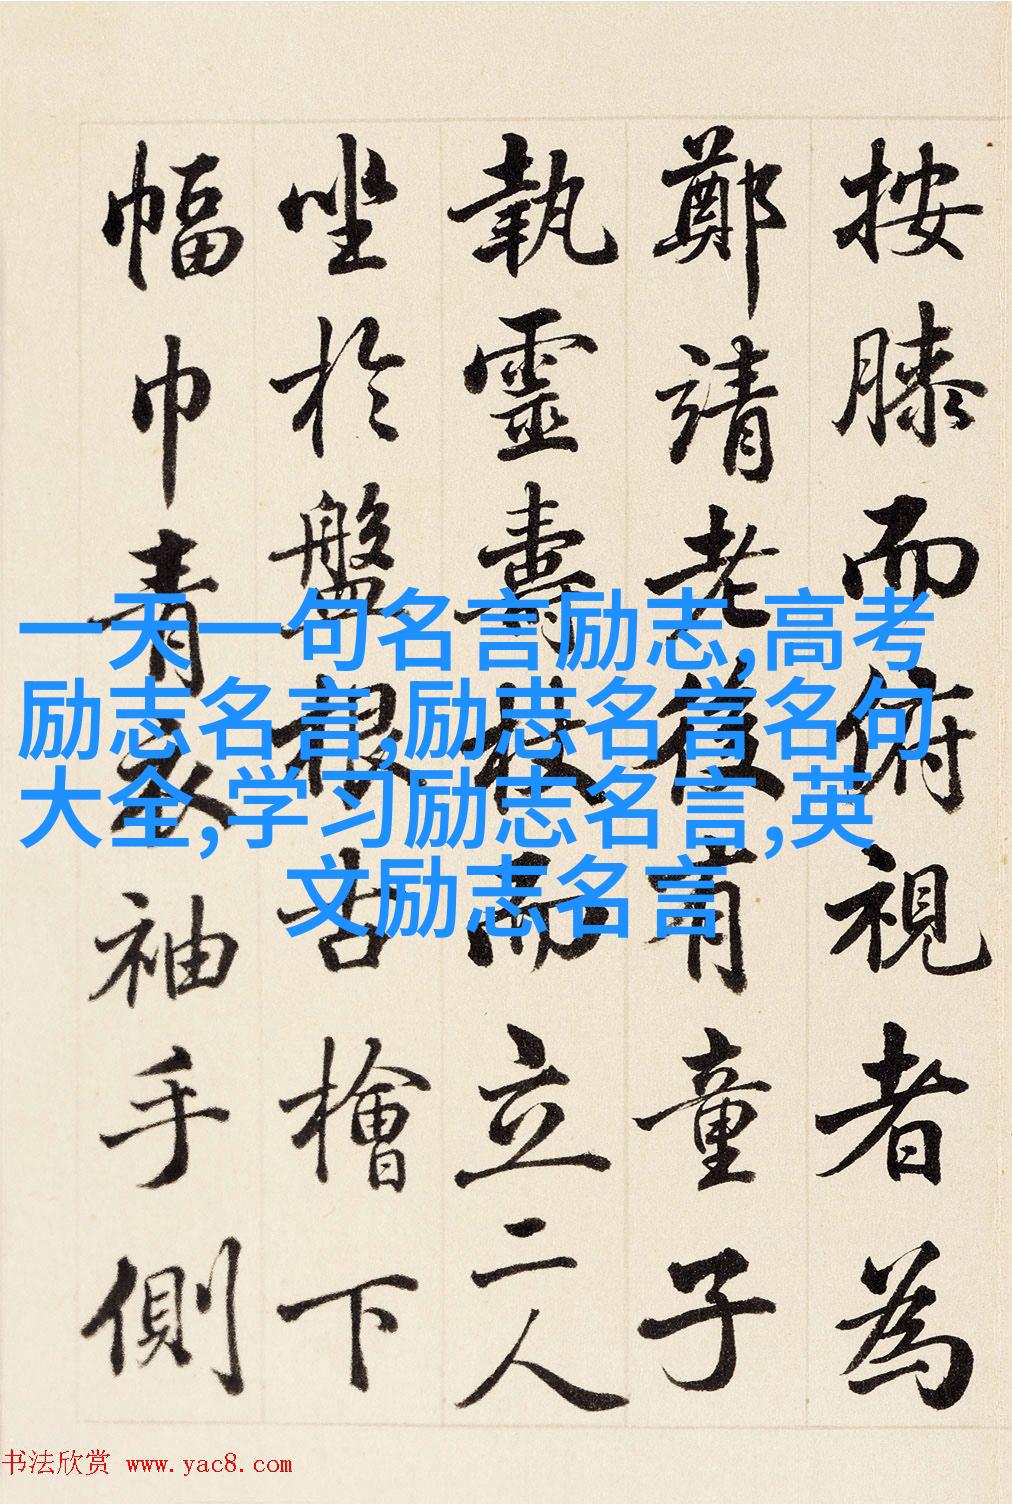 按膝而俯視者為
鄭靖老後有童子
執靈壽杖而立二人
坐於盤根古檜下
幅巾青衣袖手側
一天一句名言励志,高考
励志名言,励志名言名句
大全,学习励志名言,英
文励志名言
书法欣赏 www.yac8.com